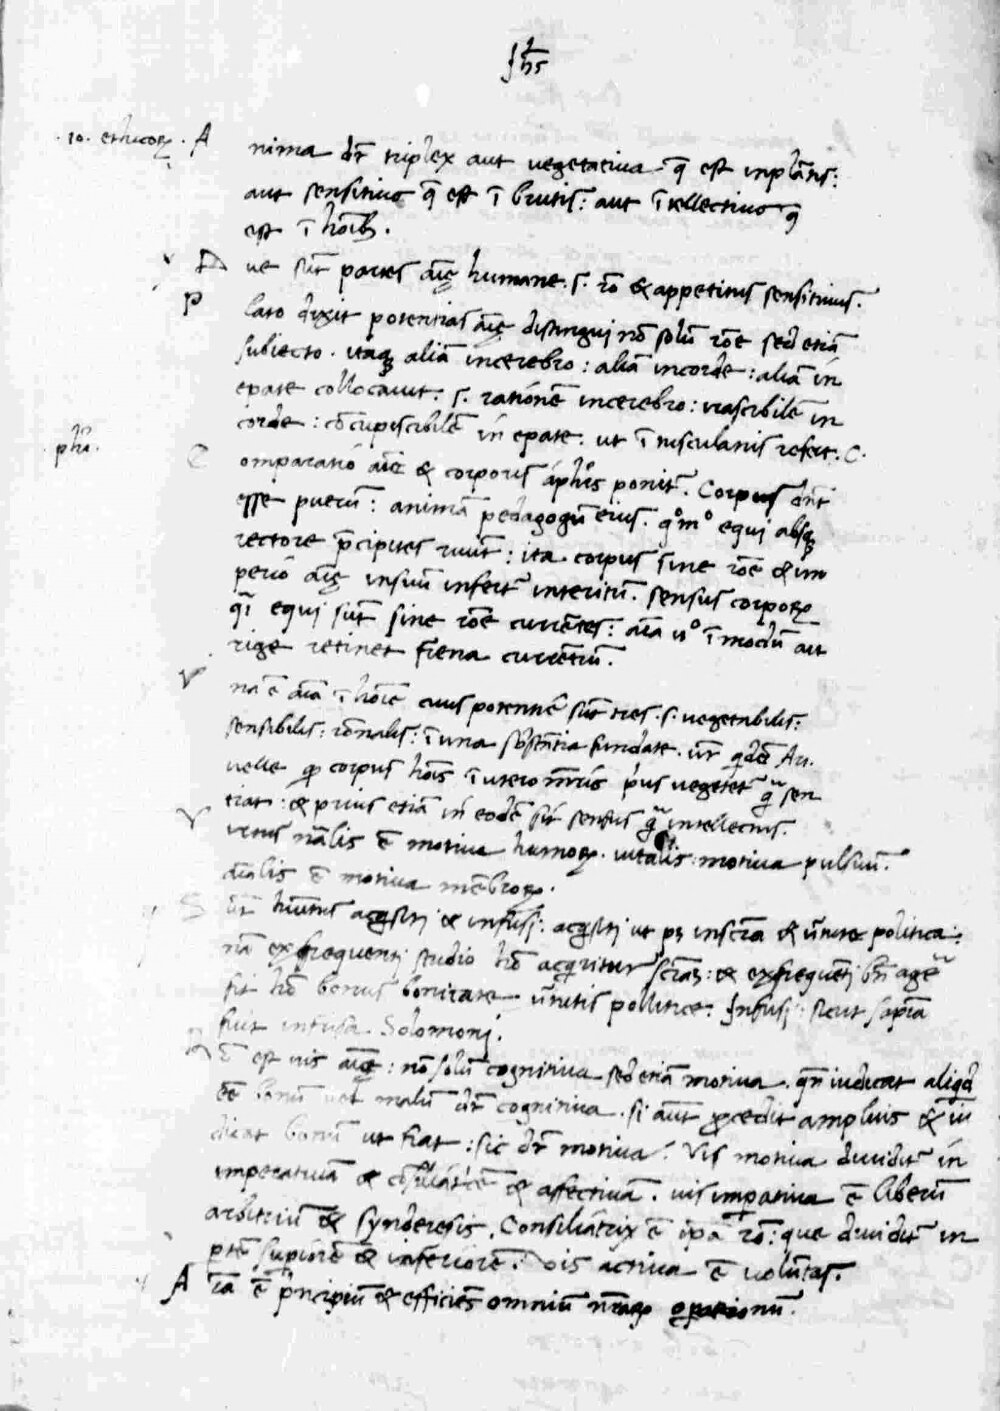 Jhs
.10. ethicoꝝ. A nima dr̄ triplex aut vegetatiua q̄ est in plātis:
aut sensitiua q̄ est ī brutis: aut ītellectiua q̄
est ī hoīb.
D ue sūt partes aīę humane. s. rō & appetitus sensitiuus.
P lato dixit potentias aīę distingui nō solū rōe sed etiā
subiecto. itaqꝫ aliā in cerebro: aliā in corde: aliā in
epate collocauit. s. rationē in cerebro: irascibilē in
corde: cōcupiscibilē in epate. ut ī tusculanis refert. C.
phi. C omparatio aīe & corporis a phis ponit̄. Corpus dn̄t
esse puerū: animā pedagogū eius. qºmº equi absqꝫ
rectore p̄cipites ruūt: ita corpus sine rōe & im
perio aīę in suū infert̄ interitū. sensus corporꝝ
q̄i equi sūt sine rōe currētes: aīa uº ī modū au
rige retinet frena currētiū.
V na ē aīa ī hoīe cuius potentie sūt tres. s. vegetabilis:
sensibilis: rōnalis: ī una sbstātia fundate. ur̄ qdē Ari.
uelle ꝙ corpus hoīs ī utero mr̄is prius vegetet̄ q̄ sen
tiat: & prius etiā in eodē sit sensus q̄ intellectus.
V irtus nālis ē motiua humoꝝ. uitalis motiua pulsuū.
aīalis ē motiua mēbroꝝ.
S ūt hītus acq̄siti & infusi: acq̄siti ut ps in scīa & uirtute politica:
nā ex frequenti studio hō acq̄ritur scīas: & ex frequēti bn̄ agē
fit hō bonus bonitate uirtutis pollitice. Infusi: sicut sapīa
fuit infusa Solomoni.
R ō est uis aīę: nō solū cognitiua sed etiā motiua. qn̄ iudicat aliqd
eē bonū uel malū dr̄ cognitiua. si aūt ꝓcedit amplius & iu
dicat bonū ut fiat: sic dr̄ motiua. Vis motiua diuidit̄ in
imperatiuā & cōsiliatricē & affectiuā. uis imperatiua ē liberū
arbitriū & synderesis. Consiliatrix ē ipa rō: que diuidit̄ in
ptē supiorē & inferiorē. vis actiua ē volūtas.
A īa ē p̄ncipiū & efficiēs omniū nr̄aꝝ operationū.